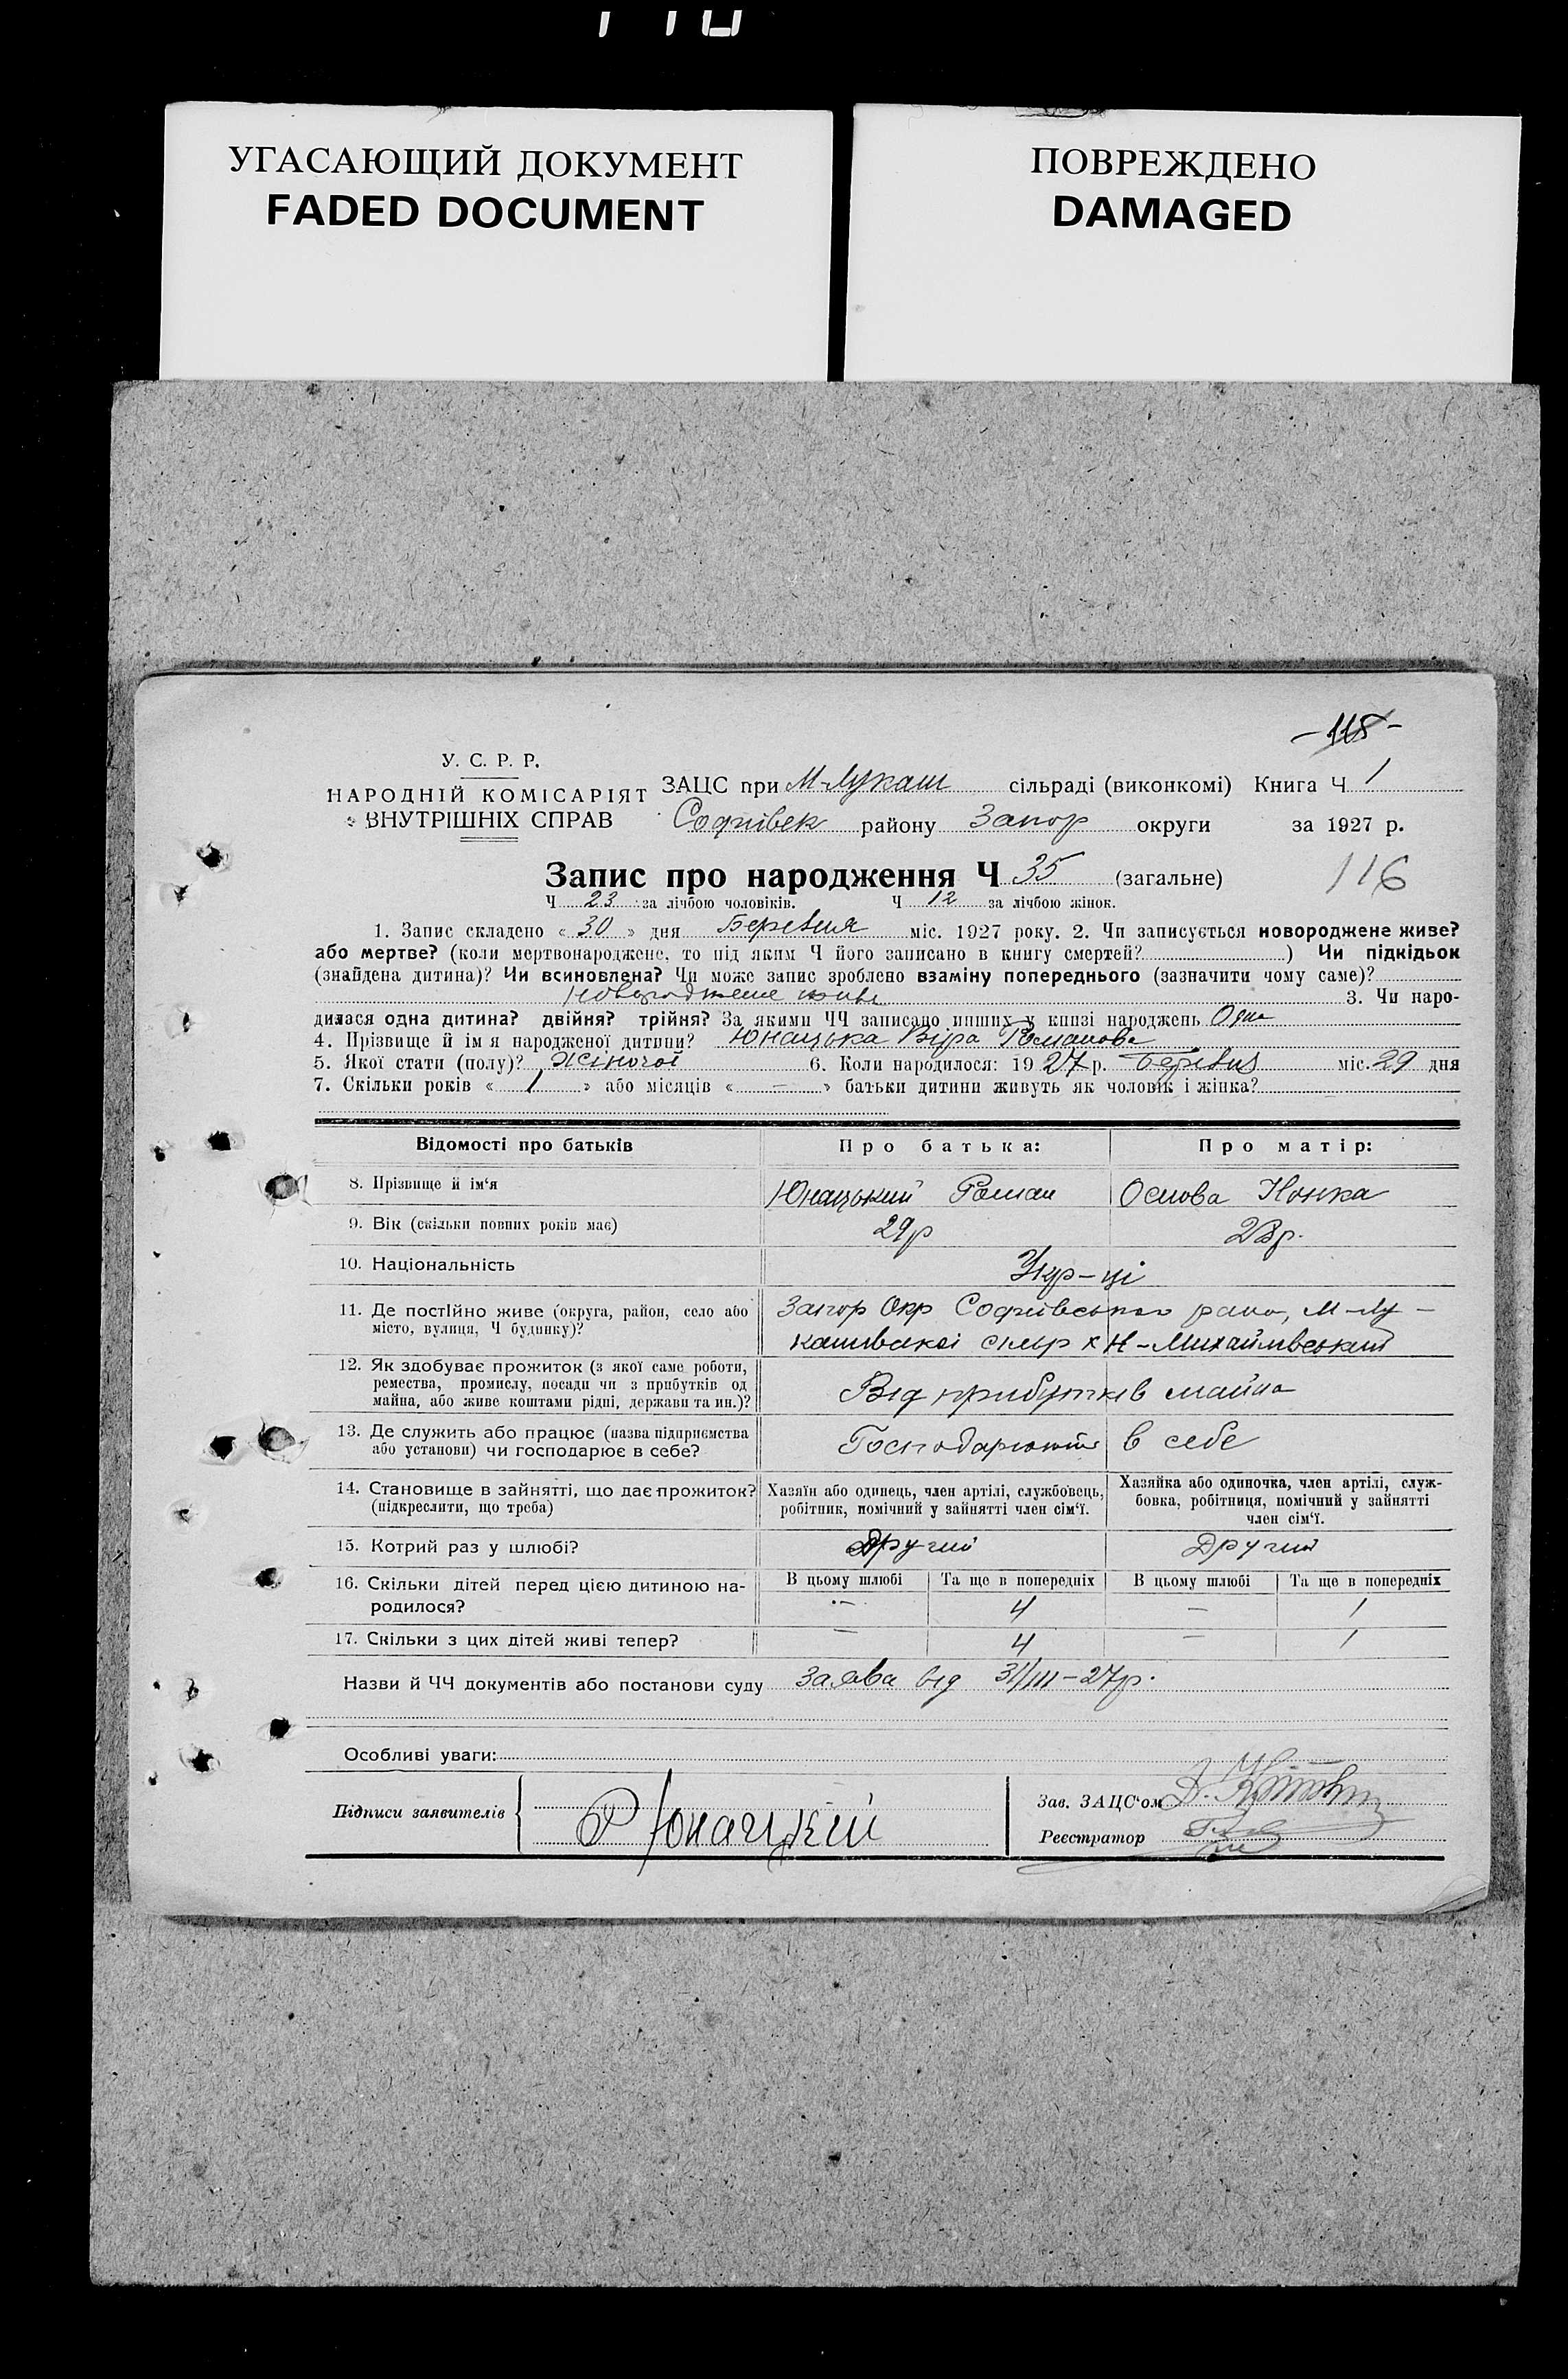 УГАСАЮЩИЙ ДОКУМЕНТ
FADED DOCUMENT
ПОВРЕЖДЕНО
DAMAGED
- 118 -
У. С. Р. Р.
НАРОДНІЙ КОМІСАРІЯТ
ВНУТРІШНІХ СПРАВ
ЗАЦС при М-Лукаш сільраді (виконкомі) Книга Ч 1
Софіївск району Запор округи за 1927 р.
Запис про народження Ч 35 (загальне)
116
Ч 23 за лічбою чоловіків. Ч 12 за лічбою жінок.
1. Запис складено « 30 » дня Березня міс. 1927 року. 2. Чи записується новороджене живе?
або мертве? (коли мертвонароджене, то під яким Ч його записано в книгу смертей? ) Чи підкідьок
(знайдена дитина)? Чи всиновлена? Чи може запис зроблено взаміну попереднього (зазначити чому саме)?
Новороджене живе 3. Чи наро-
дилася одна дитина? двійня? трійня? За якими ЧЧ записано инших у книзі народжень Одна
4. Прізвище й ім я народженої дитини? Юнацька Віра Романова
5. Якої стати (полу)? Жіночої 6. Коли народилося: 1927 р. Березня міс. 29 дня
7. Скільки років « 1 » або місяців « — » батьки дитини живуть як чоловік і жінка?
Відомості про батьків Про батька: Про матір:
8. Прізвище й ім‘я Юнацький Роман Осмова Нонка
9. Вік (скільки повних років має) 29р 28р.
10. Національність Укр-ці
11. Де постІйно живе (округа, район, село або
місто, вулиця, Ч будинку)?
Запор Окр Софиівського рано, М-Лу-
кашивської с х Н-Михайлівський
12. Як здобуває прожиток (з якої саме роботи,
ремества, промислу, посади чи з прибутків од
майна, або живе коштами рідні, держави та ин.)?
Від прибутків майна
13. Де служить або працює (назва підприємства
або установи) чи господарює в себе?
Господарюють в себе
14. Становище в зайнятті, що дає прожиток?
(підкреслити, що треба)
Хазяїн або одинець, член артілі, службовець,
робітник, помічний у зайнятті член сім‘ї.
Хазяйка або одиночка, член артілі, служ-
бовка, робітниця, помічний у зайнятті
член сім‘ї.
15. Котрий раз у шлюбі? Другий Другий
16. Скільки дітей перед цією дитиною на-
родилося?
В цьому шлюбі Та ще в попередніх В цьому шлюбі Та ще в попередніх
— 4 — 1
17. Скільки з цих дітей живі тепер? — 4 — 1
Назви й ЧЧ документів або постанови суду Заява від 31/III-27р.
Особливі уваги:
Підписи заявителів Р Юнацкій
Зав. ЗАЦС‘ом
Реєстратор